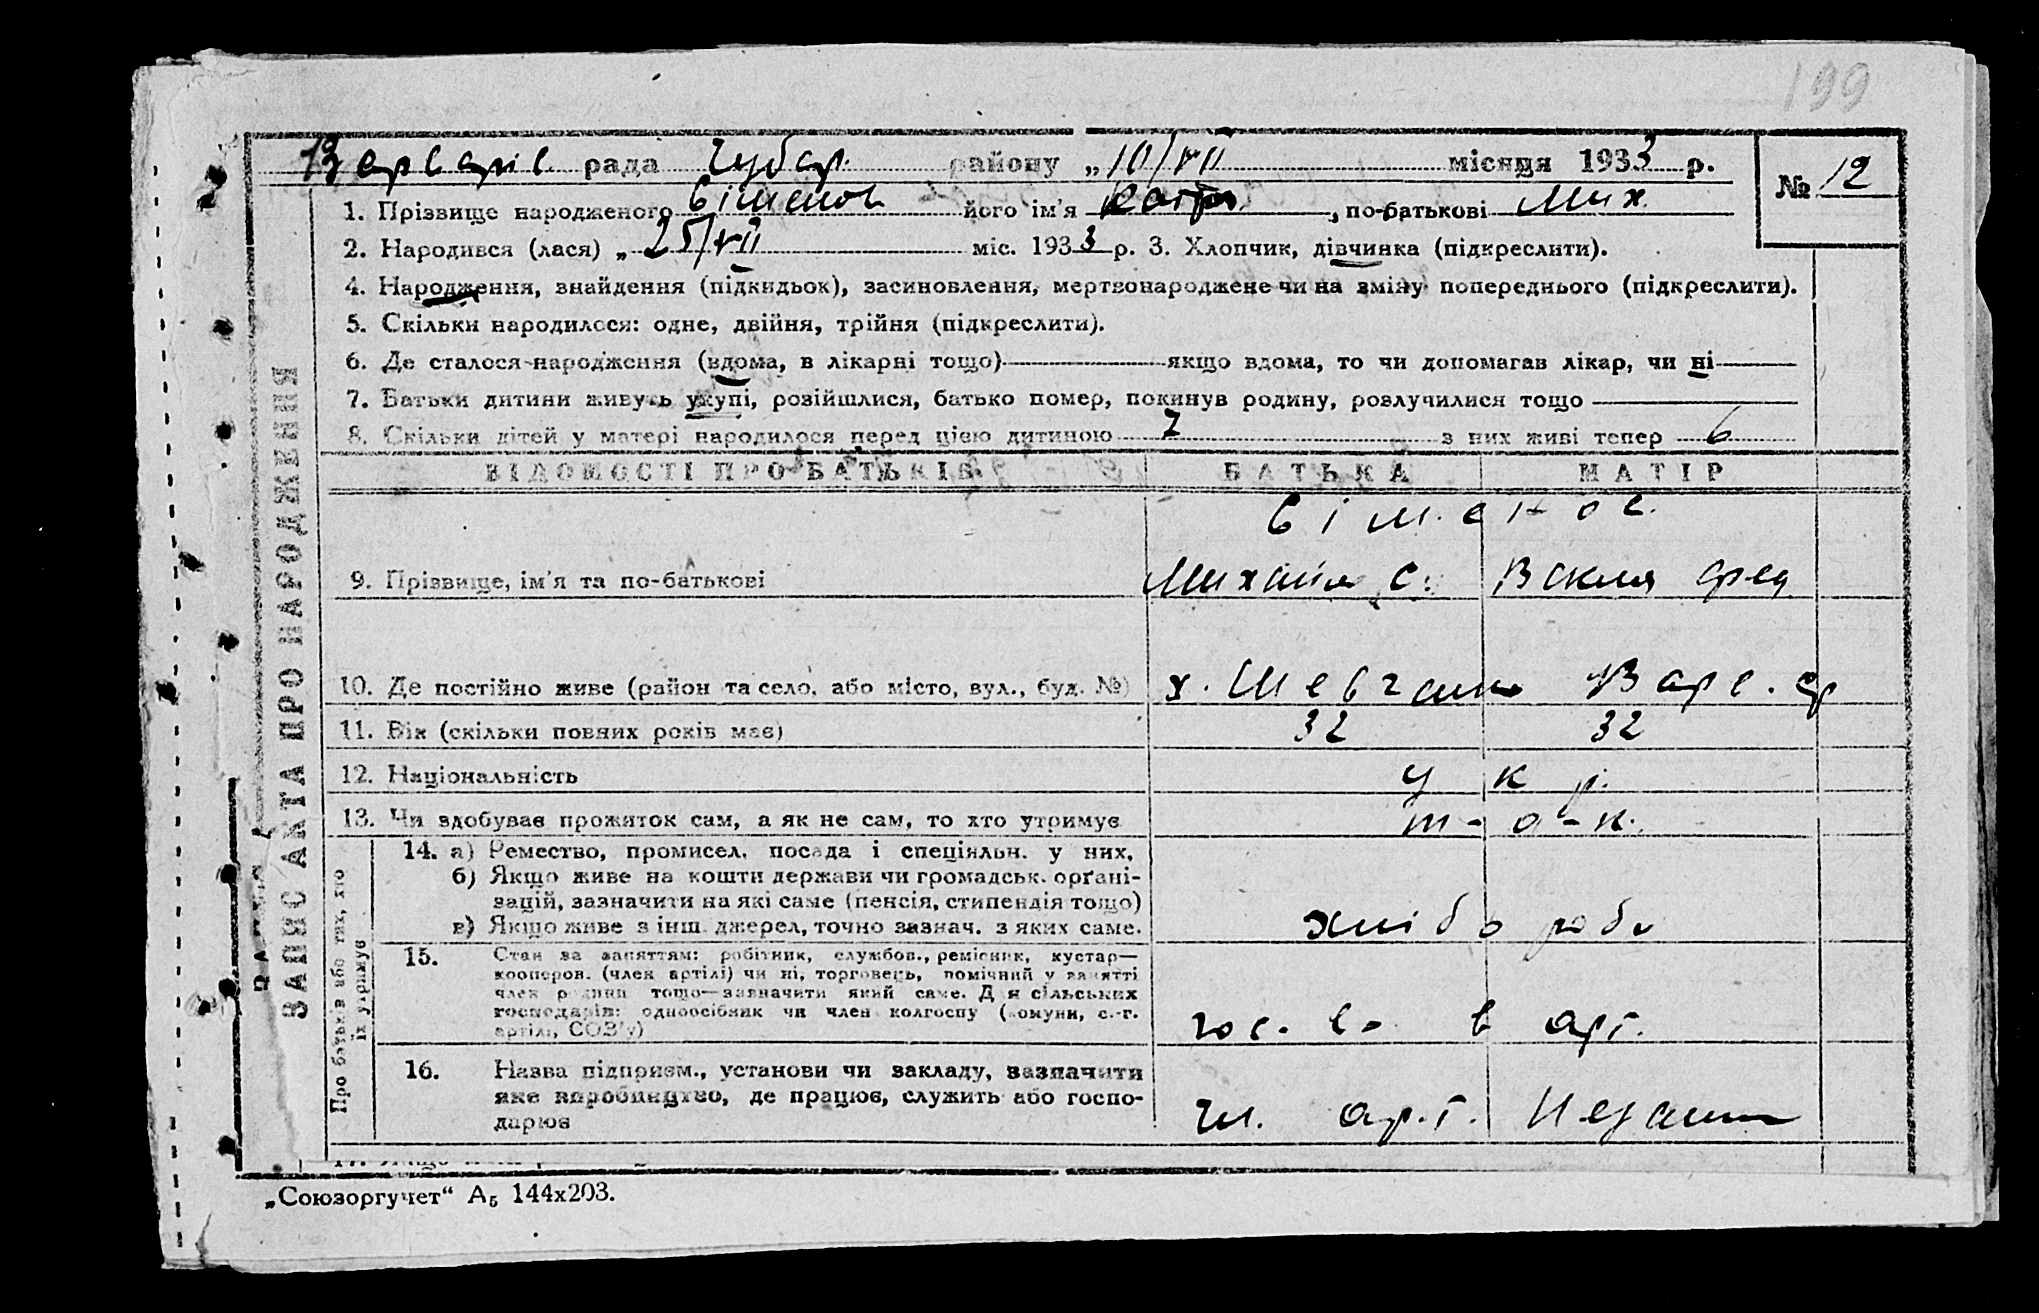 199
Варварів. рада Чубар. району „10/VII місяця 1933 р.
№ 12
1. Прізвище народженого Єіменов його ім'я , по-батькові Мих.
2. Народився (лася) „25/VII міс. 1933 р. 3. Хлопчик, дівчинка (підкреслити).
4. Народження, знайдення (підкидьок), засиновлення, мертвонароджене чи на зміну попереднього (підкреслити).
5. Скільки народилося: одне, двійня, трійня (підкреслити).
6. Де сталося народження (вдома, в лікарні тощо) якщо вдома, то чи допомагав лікар, чи ні
7. Батьки дитини живуть укупі, розійшлися, батько помер, покинув родину, розлучилися тощо
8. Скільки дітей у матері народилося перед цією дитиною 7 з них живі тепер 6
ВІДОМОСТІ ПРО БАТЬКІВ БАТЬКА МАТІР
9. Прізвище, ім'я та по-батькові Михайло С. Векла Фед
10. Де постійно живе (район та село, або місто, вул., буд. №) х. Шевченко Варв. ср
11. Вік (скільки повних років має) 32 32
12. Національність укр.
13. Чи здобуває прожиток сам, а як не сам, то хто утримує т-о-к.
14. а) Ремество, промисел, посада і спеціяльн. у них,
б) Якщо живе на кошти держави чи громадськ. орґані-
зацій, зазначити на які саме (пенсія, стипендія тощо)
в) Якщо живе з інш. джерел, точно зазнач. з яких саме. хлібороби
15. Стан за заняттям: робітник, службов., ремісник, кустар—
кооперов. (член артілі) чи ні, торговець, помічний у занятті
член родини тощо—зазначити який саме. Для сільських
господарів: одноосібник чи член колгоспу (комуни, с.-г.
артілі, СОЗ'у) гос-во в арт.
16. Назва підприєм., установи чи закладу, зазначити
яке виробництво, де працює, служить або госпо-
дарює чл. арт. Незам
ЗАПИС АКТА ПРО НАРОДЖЕННЯ
Про батьків або тих, хто
їх утримує
„Союзоргучет“ А5 144х203.